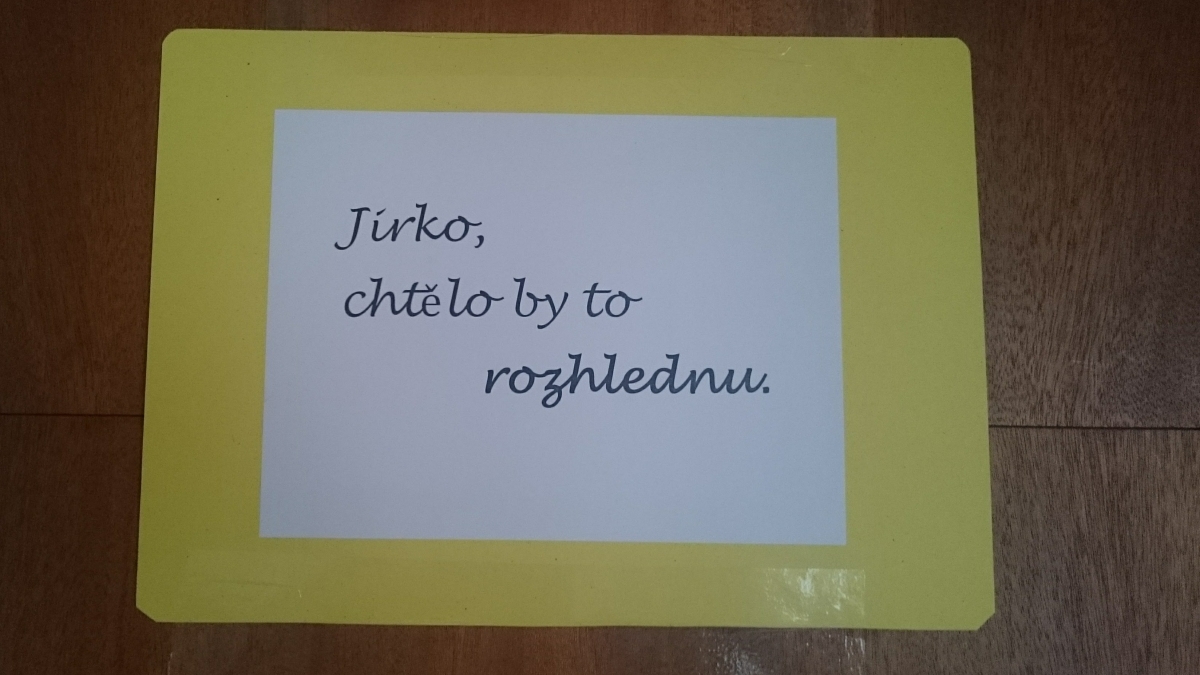 Jirko,
chtělo by to
rozhlednu.